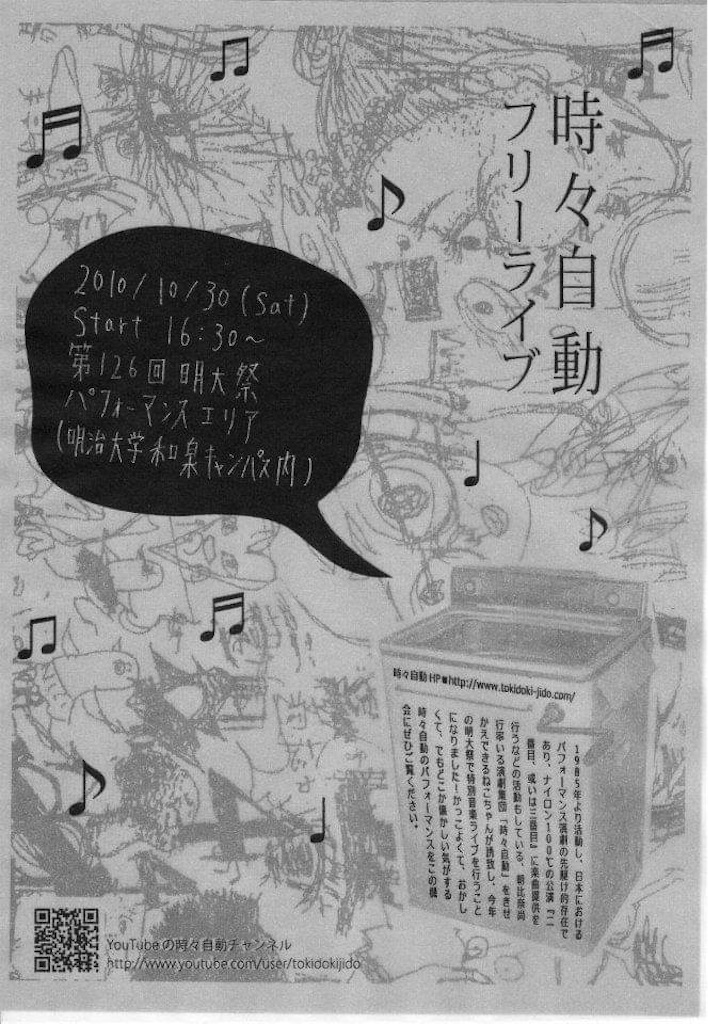 時々自動
フリーライブ
2010/10/30(Sat)
Start 16:30~
第126回 明大祭
パフォーマンスエリア
(明治大学和泉キャンパス内)
時々自動HP■http://www.tokidoki-jido.com/
1985年より活動し、日本における
パフォーマンス演劇の先駆け的存在で
あり、ナイロン100℃の公演『二
番目、或いは三番目』に楽曲提供を
行うなどの活動もしている、朝比奈尚
行率いる演劇集団「時々自動」をきせ
かえできるねこちゃんが誘致し、今年
の明大祭で特別音楽ライブを行うこと
になりました!かっこよくて、おかし
くて、でもどこか懐かしい気がする
時々自動のパフォーマンスをこの機
会にぜひご覧ください。
YouTubeの時々自動チャンネル
http://www.youtube.com/user/tokidokijido